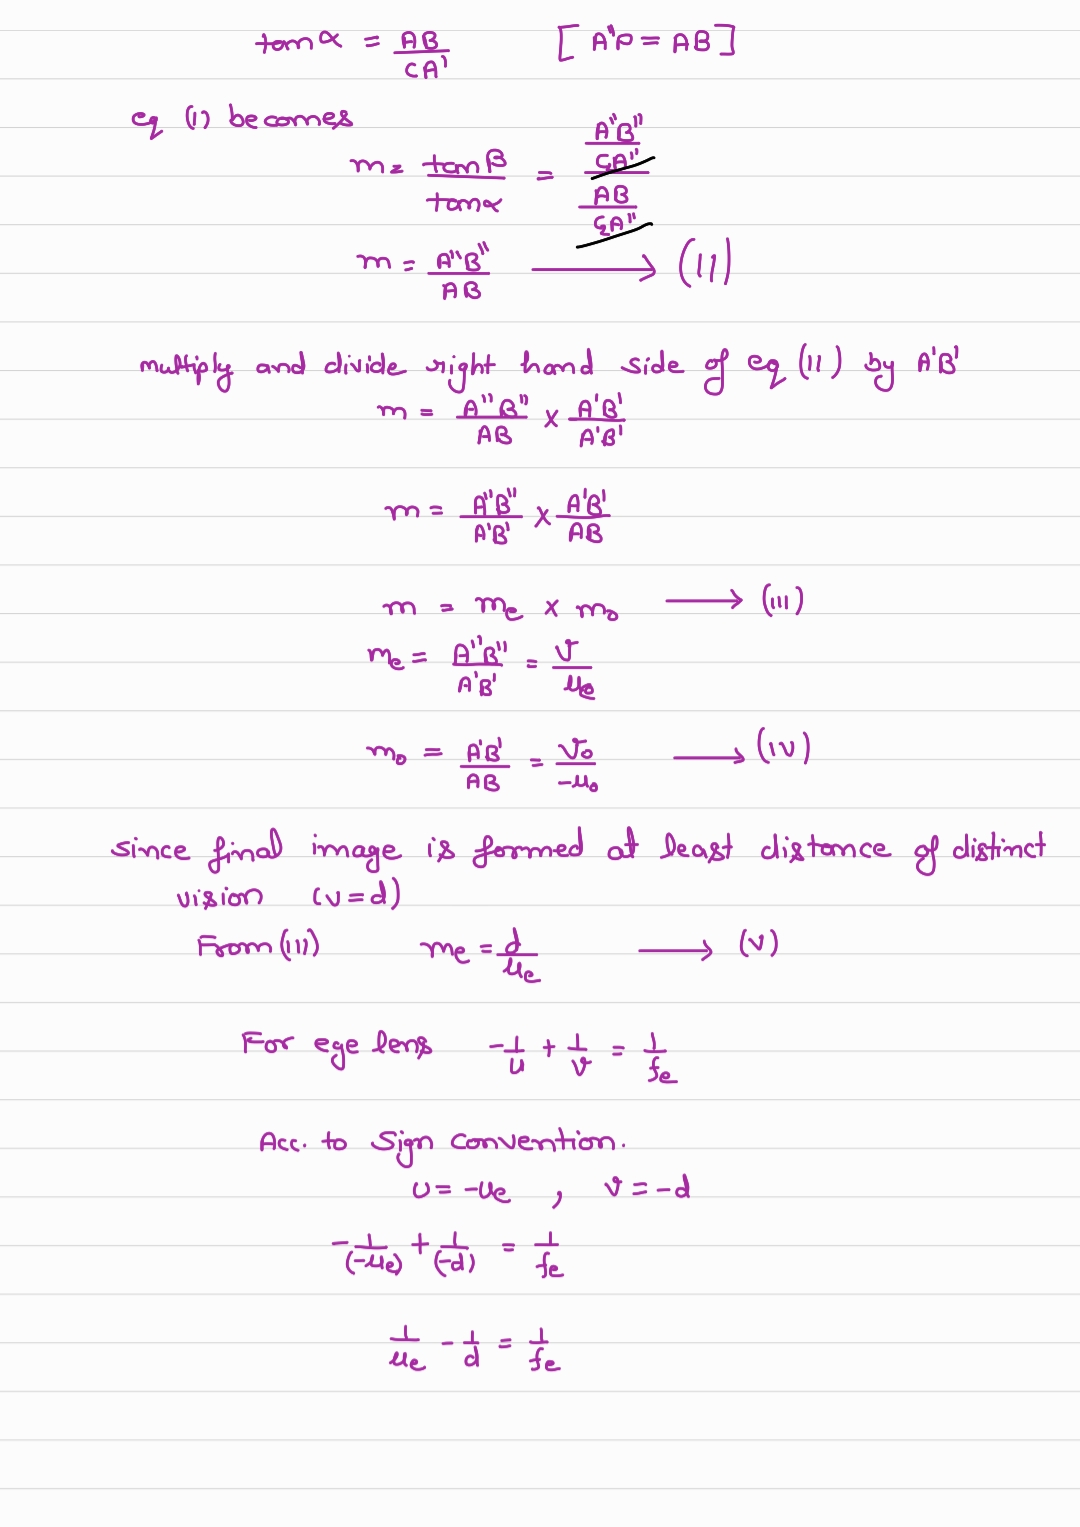 tanα = AB/CA' [A"P = AB]
eq (I) becomes
m = tanβ/tanα = (A"B"/C₂A")/(AB/C₂A")
m = A"B"/AB ⟶ (II)
multiply and divide right hand side of eq (II) by A'B'
m = A"B"/AB × A'B'/A'B'
m = A"B"/A'B' × A'B'/AB
m = mₑ × m₀ ⟶ (III)
mₑ = A"B"/A'B' = v/uₑ
m₀ = A'B'/AB = v₀/-u₀ ⟶ (IV)
since final image is formed at least distance of distinct
vision (v=d)
From (III) mₑ = d/uₑ ⟶ (V)
For eye lens -1/u + 1/v = 1/fₑ
Acc. to Sign convention.
u = -uₑ , v = -d
-1/(-uₑ) + 1/(-d) = 1/fₑ
1/uₑ - 1/d = 1/fₑ